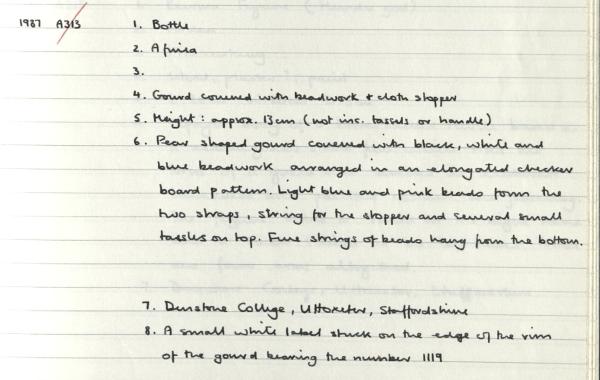 1987 A313 1. Bottle
2. Africa
3.
4. Gourd covered with beadwork + cloth stopper
5. Height : approx. 13cm (not inc. tassels or handle)
6. Pear shaped gourd covered with black, white and
blue beadwork arranged in an elongated checker
board pattern. Light blue and pink beads form the
two straps, string for the stopper and several small
tassles on top. Five strings of beads hang from the bottom.
7. Denstone College, Uttoxeter, Staffordshire
8. A small white label stuck on the edge of the rim
of the gourd bearing the number 1119